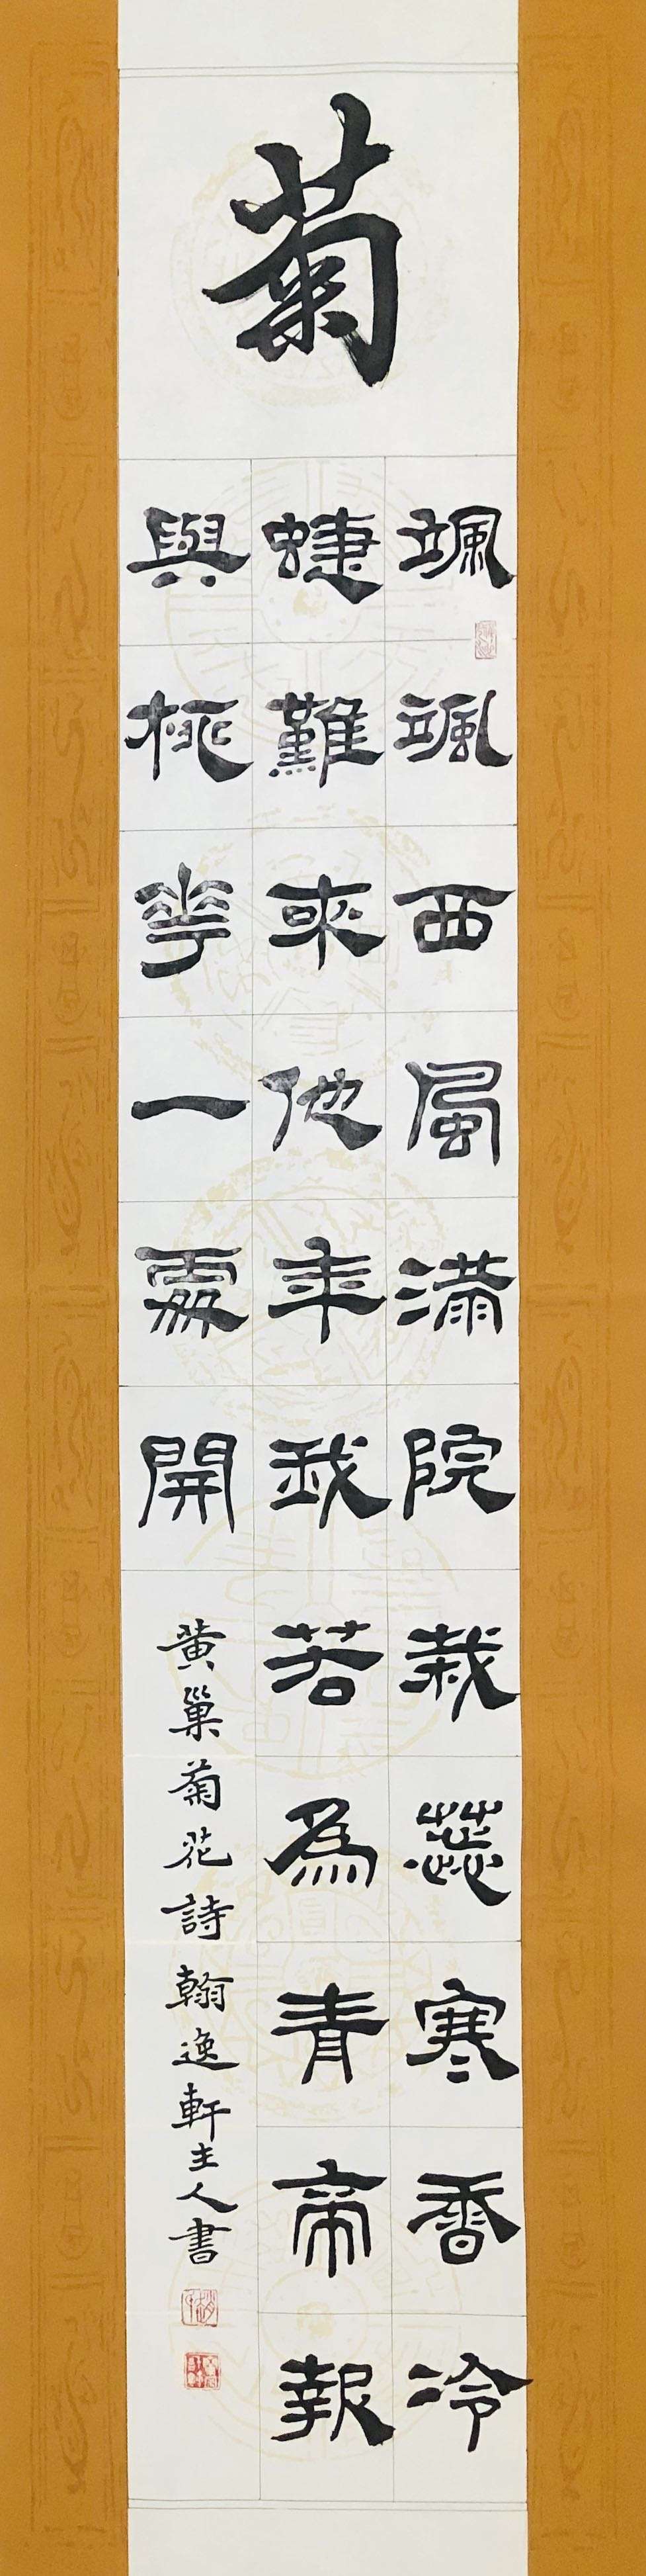 菊
颯颯西風滿院栽蕊寒香冷
蜨難來他年我若為青帝報
與桃華一處開
黄巢菊花詩翰逸軒主人書